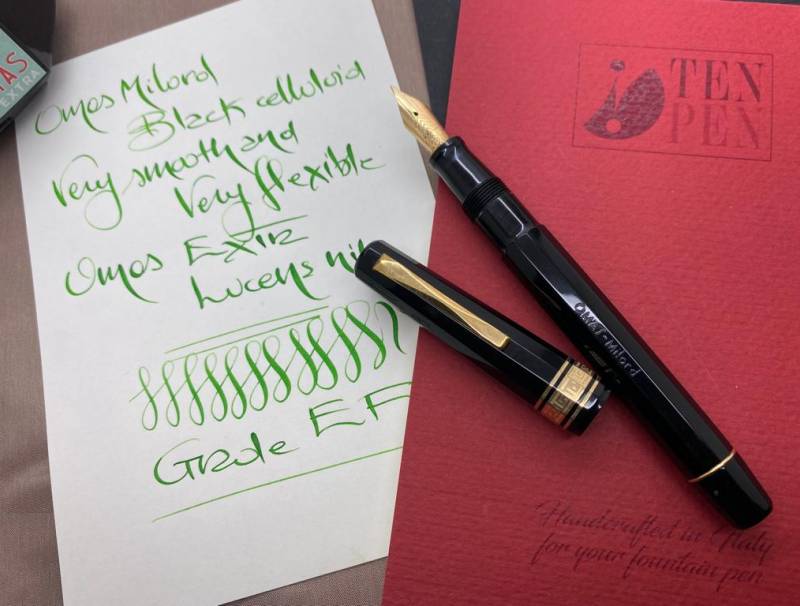 EXTRA
Omas Milord
Black celluloid
Very smooth and
Very flexible
Omas
Lucens
Grade EF
TEN
PEN
OMAS-Milord
Handcrafted in Italy
for your fountain pen